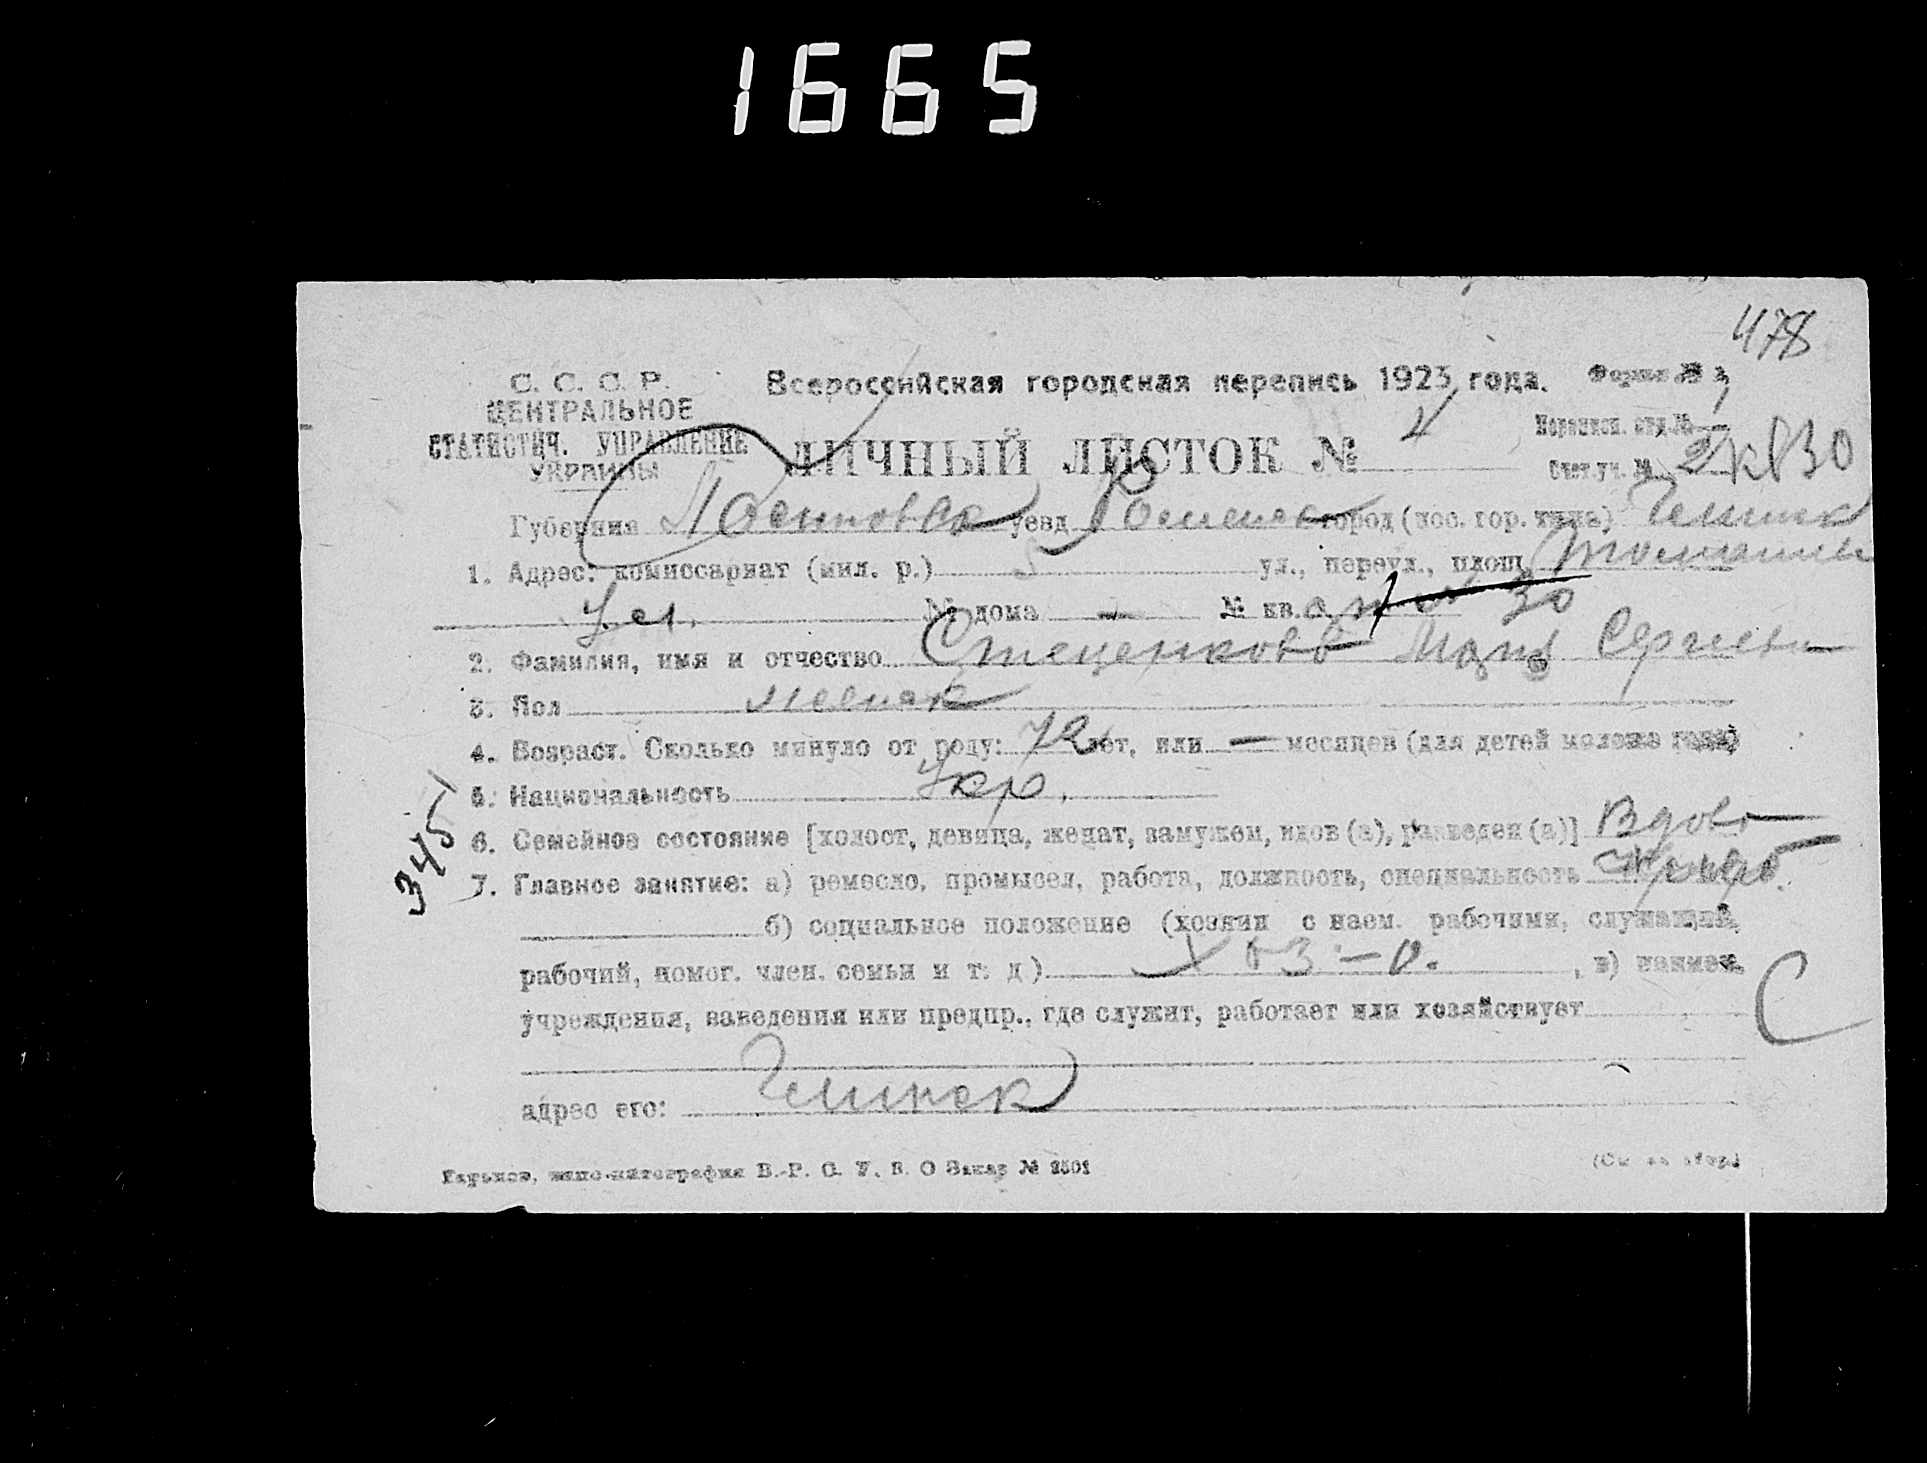 1665
478
С. С. С. Р.
ЦЕНТРАЛЬНОЕ
СТАТИСТИЧ. УПРАВЛЕНИЕ
УКРАИНЫ
Всероссийская городская перепись 1923 года.
Форма №
ЛИЧНЫЙ ЛИСТОК № 4
Счет. уч. № 2 кв 30
Губерния уезд город (пос. гор. типа) Глинск
1. Адрес: комиссариат (мил. р.) 5 ул., переул., площ.
№ дома — № кв. 30
2. Фамилия, имя и отчество Стеценкова Мария Сергиевн
3. Пол женск
4. Возраст. Сколько минуло от роду: 72 лет, или — месяцев (для детей моложе года)
5. Национальность Укр.
6. Семейное состояние [холост, девица, женат, замужем, вдов (а), разведен (а)] Вдова
7. Главное занятие: а) ремесло, промысел, работа, должность, специальность
б) социальное положение (хозяин с наем. рабочими, служащий,
рабочий, помог. член. семьи и т. д.) , в) наимен.
учреждения, заведения или предпр., где служит, работает или хозяйствует
С
адрес его: Глинск
345
Заказ № 2501